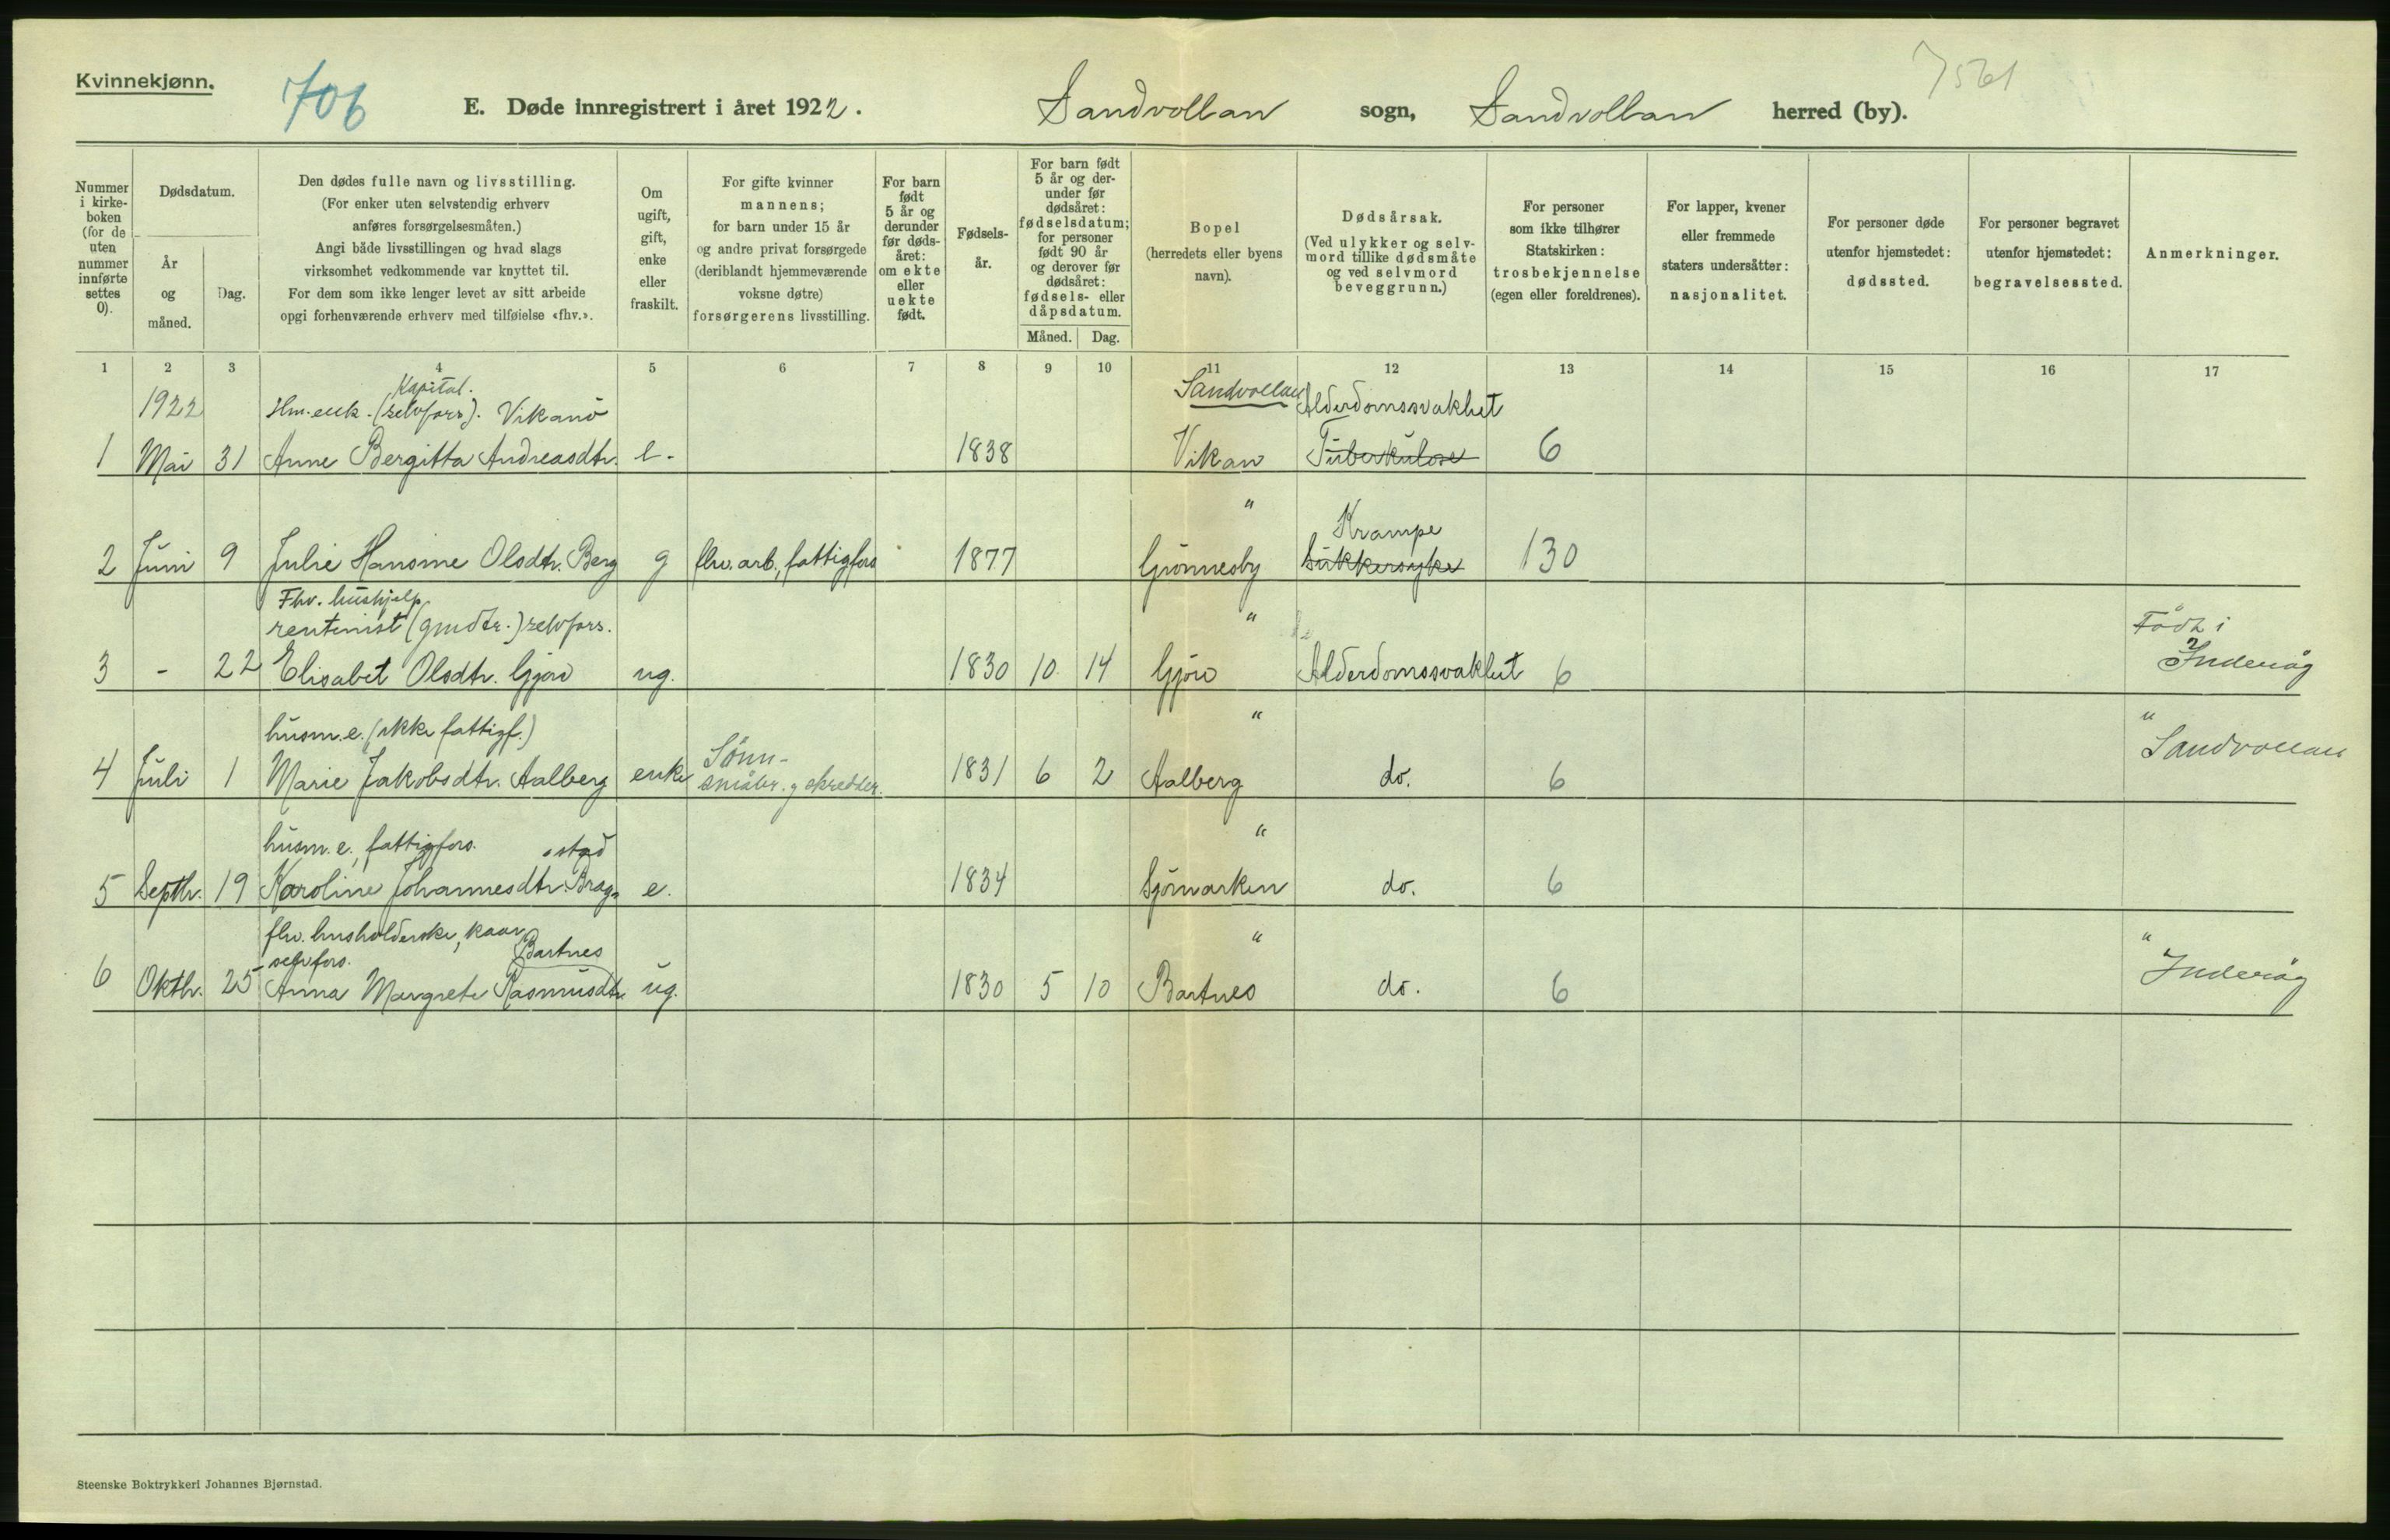 Kvinnekjønn.
706
7561
E. Døde innregistrert i året 1922. Sandvollan sogn, Sandvollan herred (by).
Nummer i kirke-boken (for de uten nummer innførte settes 0).
Dødsdatum.
År og måned.
Dag.
Den dødes fulle navn og livsstilling.
(For enker uten selvstendig erhverv
anføres forsørgelsesmåten.)
Angi både livsstillingen og hvad slags
virksomhet vedkommende var knyttet til.
For dem som ikke lenger levet av sitt arbeide
opgi forhenværende erhverv med tilføielse «fhv.».
Om ugift, gift, enke eller fraskilt.
For gifte kvinner
mannens;
for barn under 15 år
og andre privat forsørgede
(deriblandt hjemmeværende
voksne døtre)
forsørgerens livsstilling.
For barn født 5 år og derunder før døds-året: om ekte eller uekte født.
Fødsels-år.
For barn født
5 år og der-
under før
dødsåret:
fødselsdatum;
for personer
født 90 år
og derover før
dødsåret:
fødsels- eller
dåpsdatum.
Måned. Dag.
Bopel
(herredets eller byens
navn).
Dødsårsak.
(Ved ulykker og selv-
mord tillike dødsmåte
og ved selvmord
beveggrunn.)
For personer
som ikke tilhører
Statskirken:
trosbekjennelse
(egen eller foreldrenes).
For lapper, kvener
eller fremmede
staters undersåtter:
nasjonalitet.
For personer døde
utenfor hjemstedet:
dødssted.
For personer begravet
utenfor hjemstedet:
begravelsessted.
Anmerkninger.
1 2 3 4 5 6 7 8 9 10 11 12 13 14 15 16 17
Kapital.
1922 Hm. enk. (selvfors). Vikanö Sandvollan Alderdomssvakhet
1 Mai 31 Anne Bergitta Andreasdtr. e. 1838 Vikan Tuberkulose 6
" Krampe
2 Juni 9 Julie Hansine Olsdtr. Berg g fhv. arb., fattigfors 1877 Grönnesby Sukkersyke 130
Fhv. hushjelp
rentenist (gmdtr.) selvfors. " Född i
3 - 22 Elisabet Olsdtr. Gjörv ug. 1830 10 14 Gjörv Alderdomssvakhet 6 Inderöy
husm. e. (ikke fattigf.) Sönn- " "
4 Juli 1 Marie Jakobsdtr. Aalberg enke småbr. g skredder. 1831 6 2 Aalberg do. 6 Sandvollan
husm. e., fattigfors. stad "
5 Septbr. 19 Karoline Johannesdtr. Brag- e. 1834 Sjömarken do. 6
fhv. husholderske, kaar,
selvfors. Bartnes " "
6 Oktbr. 25 Anna Margrete Rasmusdtr ug. 1830 5 10 Bartnes do. 6 Inderöy
Steenske Boktrykkeri Johannes Bjørnstad.